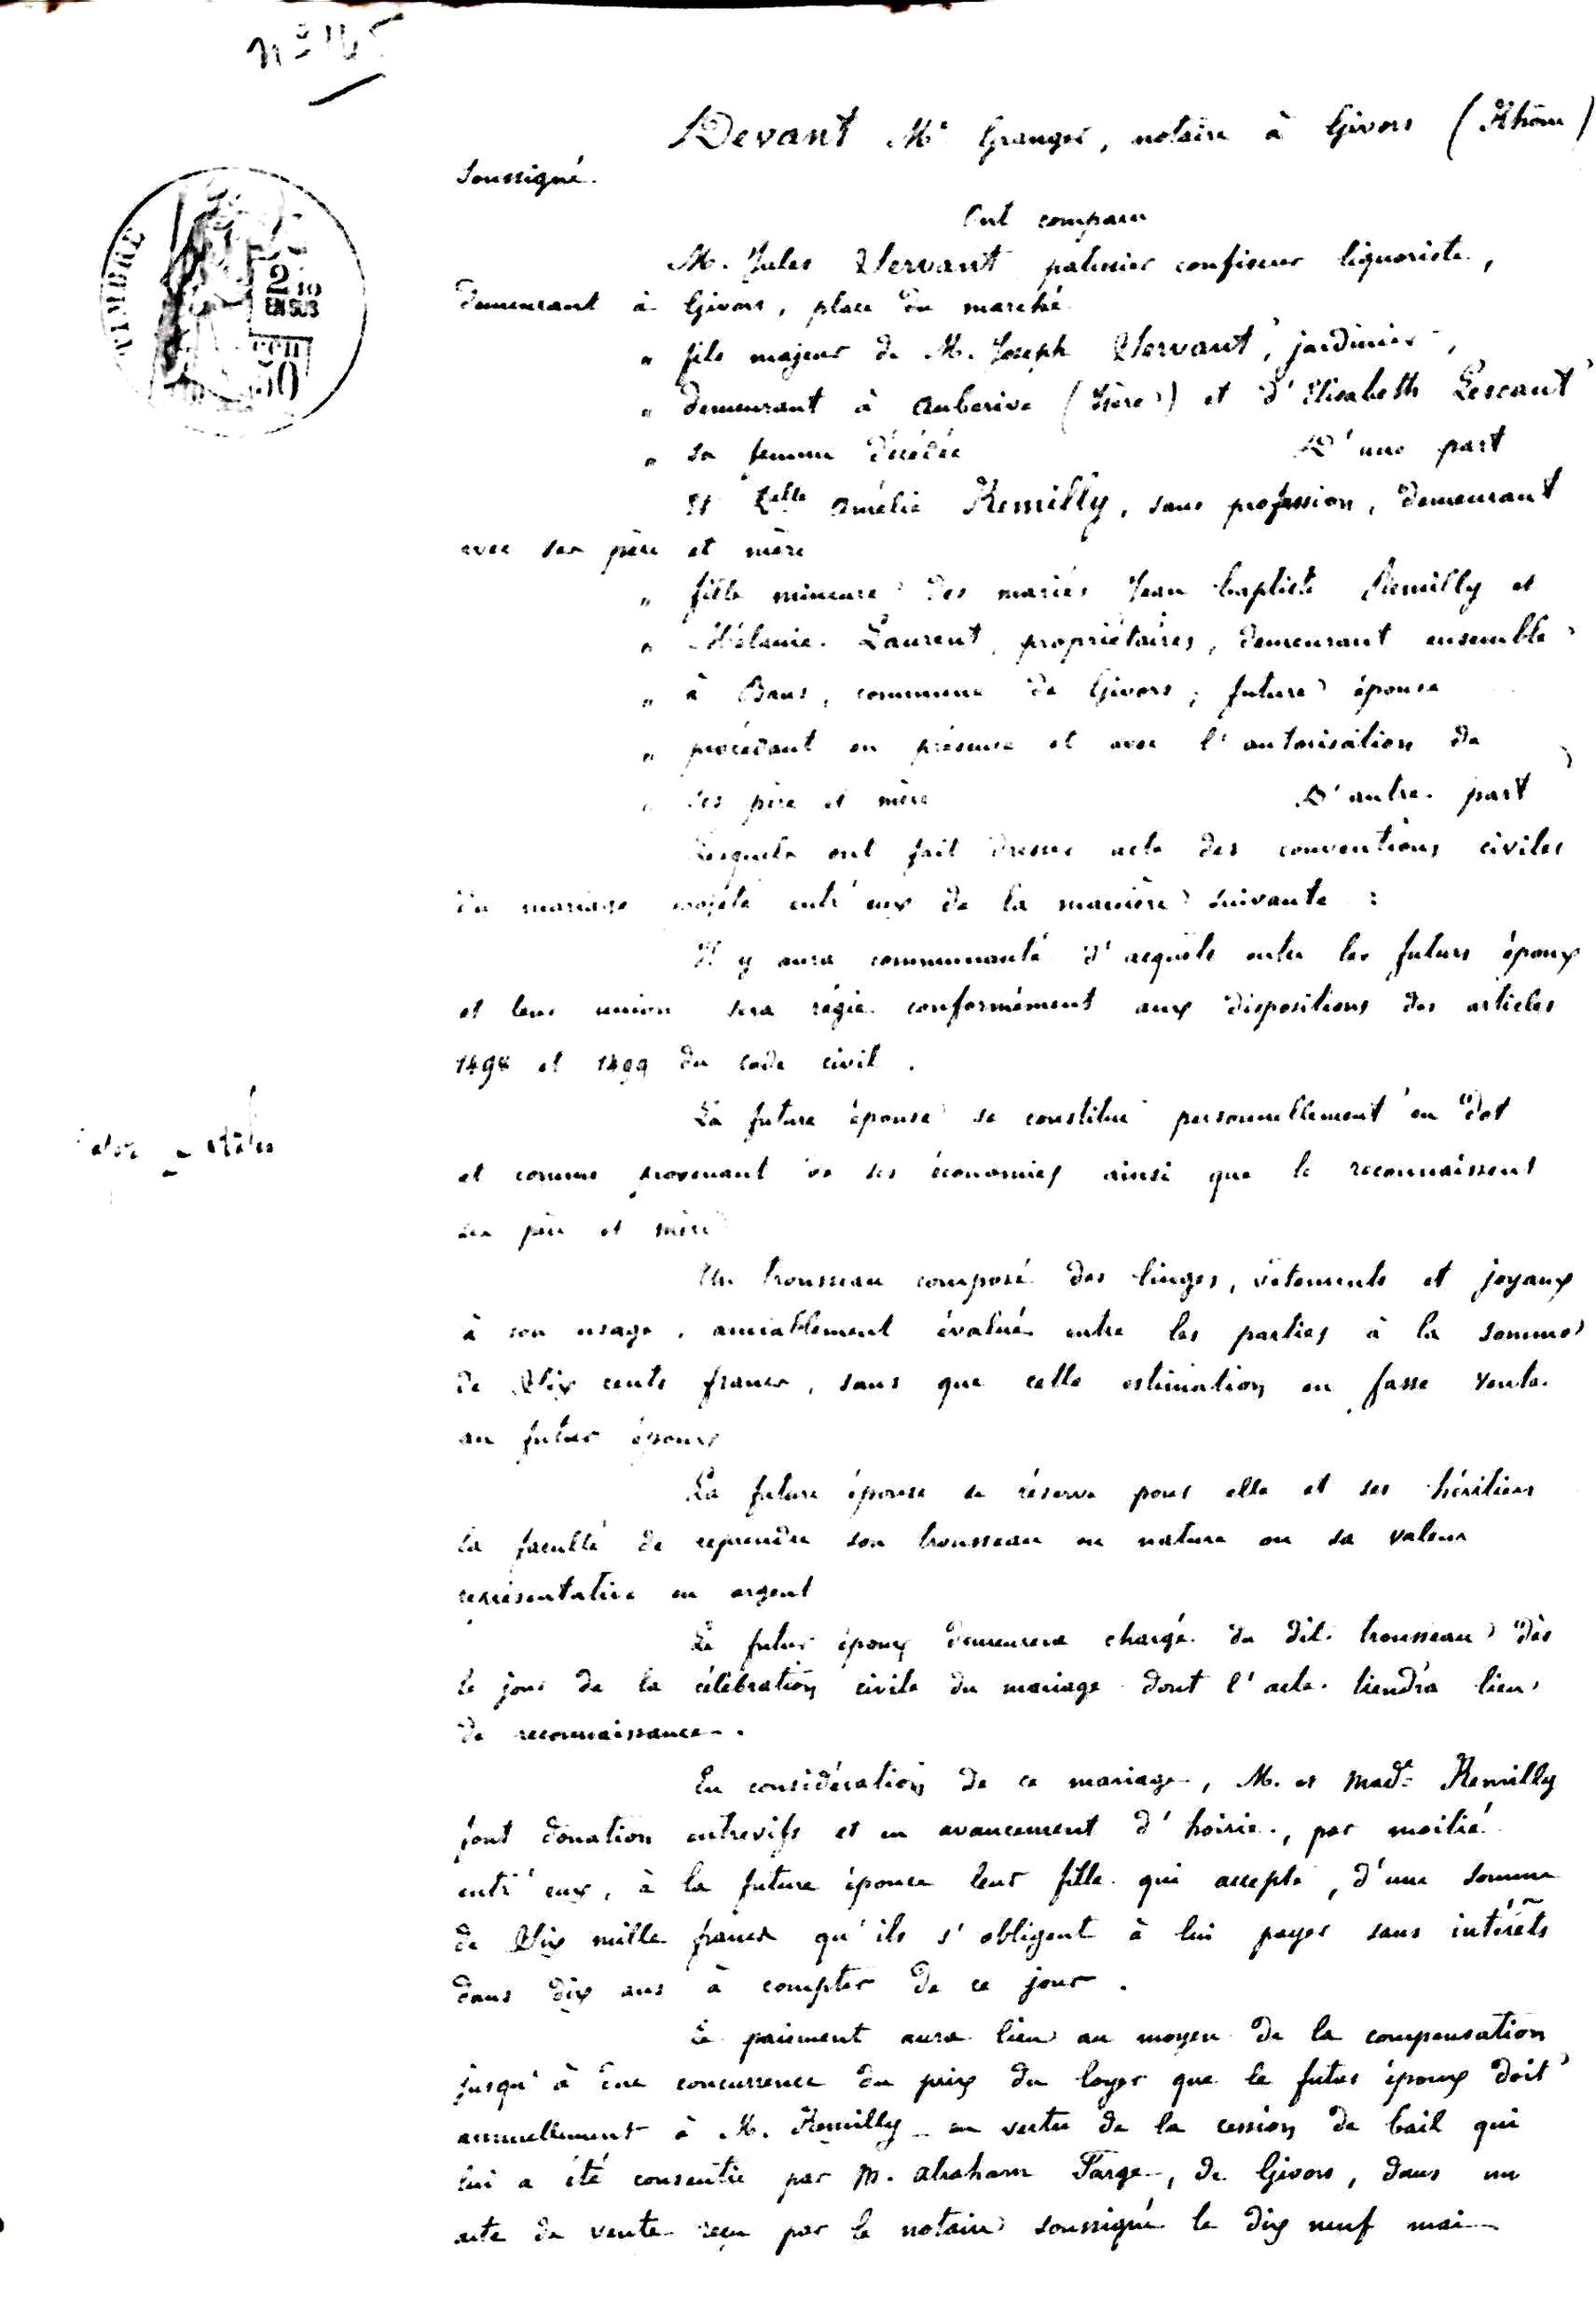 nº 145
Devant Me Granger, notaire à Givors (Rhône)
soussigné.
Ont comparu
M. Jules Servant patissier confiseur liquoriste,
demeurant à Givors, place du marché
" fils majeur de M. Joseph Servant, jardinier,
" demeurant à Auberive (Isère) et d'Elisabeth Lescaut
" sa femme décédée D'une part
Et Delle Amélie Remilly, sans profession, demeurant
avec ses père et mère
" fille mineure des mariés Jean Baptiste Remilly et
" Mélanie Laurent, propriétaires, demeurant ensemble
" à Bans, commune de Givors; future épouse
" procédant en présence et avec l'autorisation de
" ses père et mère D'autre part
Lesquels ont fait dresser acte des conventions civiles
du mariage projeté entr'eux de la manière suivante :
Il y aura communauté d'acquêts entre les futurs époux
et leur union sera régie conformément aux dispositions des articles
1498 et 1499 du code civil.
La future épouse se constitue personnellement en dot
et comme provenant de ses économies ainsi que le reconnaissent
ses père et mère
Un trousseau composé des linges, vêtements et joyaux
à son usage, amiablement évalué entre les parties à la somme
de Six cents francs, sans que cette estimation en fasse vente
au futur époux
La future épouse se réserve pour elle et ses héritiers
la faculté de reprendre son trousseau en nature ou sa valeur
représentative en argent
Le futur époux demeurera chargé du dit trousseau dès
le jour de la célébration civile du mariage dont l'acte tiendra lieu
de reconnaissance.
En considération de ce mariage, M. et Made Remilly
font donation entrevifs et en avancement d'hoirie, par moitié
entr'eux, à la future épouse leur fille qui accepte, d'une somme
de Six mille francs qu'ils s'obligent à lui payer sans intérêts
dans dix ans à compter de ce jour.
Le paiement aura lieu au moyen de la compensation
jusqu'à due concurrence du prix du loyer que le futur époux doit
annuellement à M. Remilly en vertu de la cession de bail qui
lui a été consentie par M. Abraham Farge, de Givors, dans un
acte de vente reçu par le notaire soussigné le dix neuf mai
TIMBRE
2/10
EN SUS
50